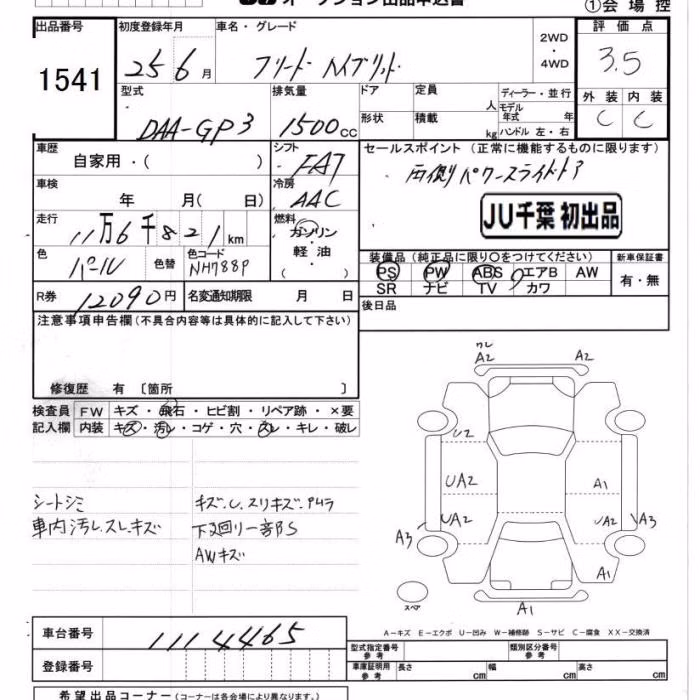 オークション出品申込書
①会場控
出品番号
1541
初度登録年月
25 6月
車名・グレード
フリード ハイブリッド
2WD
・
4WD
評価点
3.5
型式
DAA-GP3
排気量
1500cc
ドア
形状
定員
人
積載
kg
ディーラー・並行
モデル年式 年
ハンドル 左・右
外装
内装
C
C
車歴
自家用・( )
シフト
FAT
セールスポイント (正常に機能するものに限ります)
両側パワースライドドア
車検
年 月( 日)
冷房
AAC
JU千葉 初出品
走行
11万6千821km
燃料
ガソリン
・
軽油
・
色
パール
色替
色コード
NH788P
装備品(純正品に限り○をつけてください)
PS
PW
ABS
エアB
AW
SR
ナビ
TV
カワ
新車保証書
有・無
R券
12090円
名変通知期限 月 日
後日品
注意事項申告欄(不具合内容等は具体的に記入して下さい)
修復歴 有 〔箇所 〕
検査員
記入欄
FW
キズ・飛石・ヒビ割・リペア跡・×要
内装
キズ・汚レ・コゲ・穴・スレ・キレ・破レ
シートシミ
車内汚レスレキズ
キズ.U.スリキズ.P4ラ
下廻リ一部S
AWキズ
A2
A2
U2
UA2
A1
UA2
UA2
A3
A3
A1
スペア
A1
A－キズ E－エクボ U－凹み W－補修跡 S－サビ C－腐食 XX－交換済
車台番号
1114465
登録番号
型式指定番号
参考
類別区分番号
参考
車庫証明用
参考
長さ
cm
幅
cm
高さ
cm
希望出品コーナー(コーナーは各会場により異なります。)